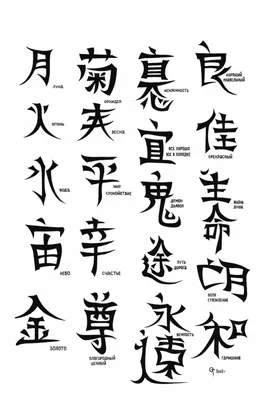 月
ЛУНА
火
ОГОНЬ
水
ВОДА
宙
НЕБО
金
ЗОЛОТО
菊
ОРХИДЕЯ
夫
ВЕСНА
平
МИР
СПОКОЙСТВИЕ
幸
СЧАСТЬЕ
尊
БЛАГОРОДНЫЙ
ЦЕННЫЙ
宜
ВСЕ ХОРОШО
ВСЕ В ПОРЯДКЕ
鬼
ДЕМОН
ДЬЯВОЛ
途
ПУТЬ
ДОРОГА
永遠
ВЕЧНОСТЬ
良
ХОРОШИЙ
佳
ПРЕКРАСНЫЙ
生命
ЖИЗНЬ
ДУША
ВОЛЯ
СТРЕМЛЕНИЕ
和
ГАРМОНИЯ